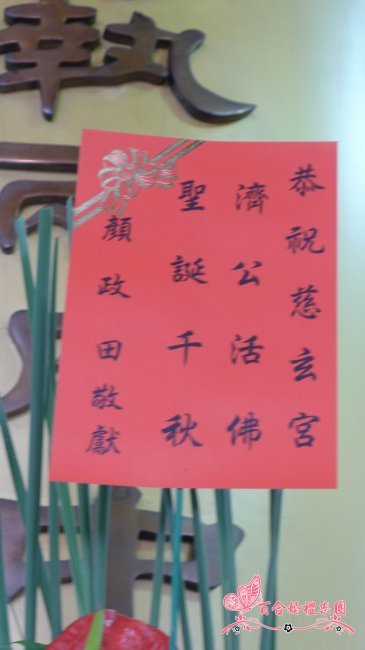 恭祝慈玄宮
濟公活佛
聖誕千秋
顏政田敬獻
百合婚禮樂園